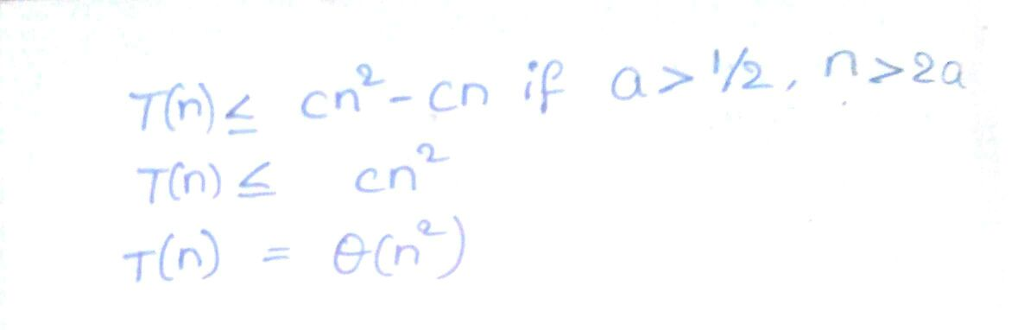 T(n) ≤ cn² - cn if a > 1/2, n > 2a
T(n) ≤ cn²
T(n) = θ(n²)